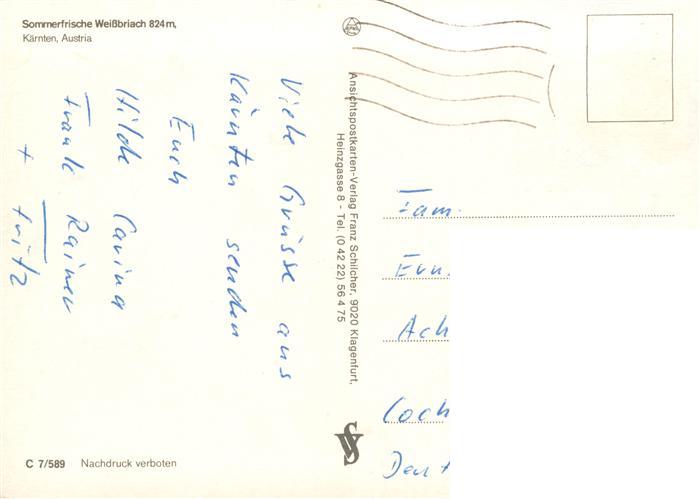 Sommerfrische Weißbriach 824m,
Kärnten, Austria
Viele Grüsse aus
Kärnten senden
Euch
Hilde Carina
Frank Rainer
+ Fritz
Ansichtspostkarten-Verlag Franz Schilcher, 9020 Klagenfurt,
Heinzgasse 8 - Tel. (0 42 22) 56 4 75
Fam.
Ach
Coch
C 7/589 Nachdruck verboten